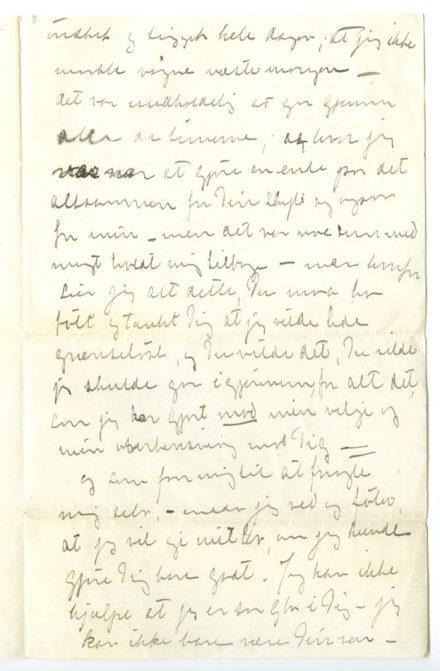 ønsket og ligget hele dagen, at jeg ikke
maatte vaagne næste morgen —
det var uudholdelig at gaa gjennem
alle de timerne,
at gjøre en ende paa det
altsammen for Din skyld og ogsaa
for min — men det var noe som med
magt holdt mig tilbage — men hvorfor
sier jeg alt dette, Du maa ha
følt og tænkt Dig at jeg vilde lide
grænseløst, og Du vilde det, Du vilde
jeg skulde gaa igjennem for alt det,
som jeg har gjort mod min vilje og
min mod Dig —
og som faar mig til at frygte
mig selv, — naar jeg ved og føler,
at jeg vil gi mit liv, om jeg kunde
gjøre Dig bare godt. Jeg kan ikke
hjælpe at jeg er saa glad i Dig — jeg
kan ikke bare være Din ven —